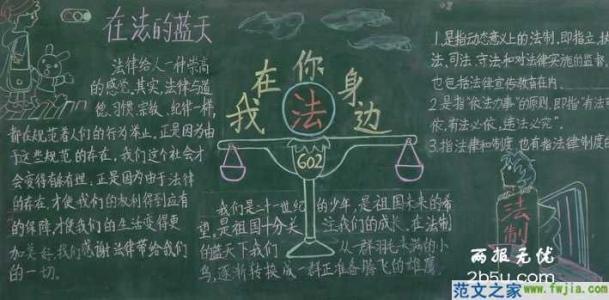 在法的蓝天
法律给人一种崇高
的感觉,其实,法律与道
德、习惯、宗教、纪律一样,
都在规范着人们的行为举止,正是因为由
于这些规范的存在,我们这个社会才
会变得有条有理,正是因为由于法律
的存在,才使我们的权利得到应有
的保障,才使我们的生活变得更
加美好,我们感谢法律带给我们
的一切。
我在你身边
法
602
我们是二十一世纪的少年,是祖国未来的希
望,是祖国十分关注我们的成长,在法制
的蓝天下我们从一群羽毛未满的小
鸟,逐渐转换成一群正准备腾飞的雄鹰
1.是指动态意义上的法制,即指立、执
法、司法、守法和对法律实施的监督,
也包括法律宣传教育在内。
2.是指“依法办事”的原则,即指“有法
依,有法必依,违法必究”。
3.指法律和制度,也有指法律制度的
法制
两报无优
2b5u.com
范文之家
www.fwjia.com